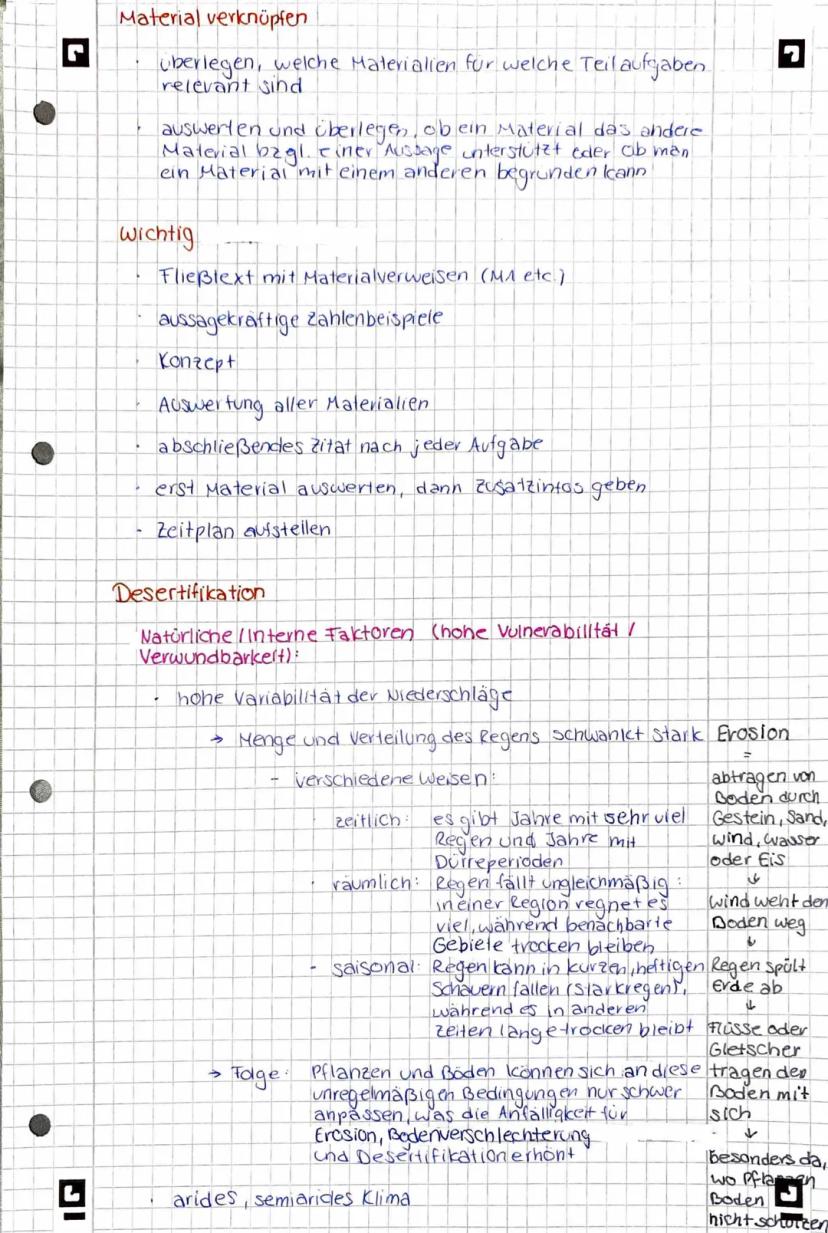 Material verknüpfen
· überlegen, welche Materialien für welche Teilaufgaben
relevant sind
· auswerten und überlegen, ob ein Material das andere
Material bzgl. einer Aussage unterstützt oder ob man
ein Material mit einem anderen begründen kann
Wichtig
· Fließtext mit Materialverweisen (M1 etc.)
· aussagekräftige Zahlenbeispiele
· Konzept
· Auswertung aller Materialien
· abschließendes Zitat nach jeder Aufgabe
· erst Material auswerten, dann Zusatzinfos geben
- Zeitplan aufstellen
Desertifikation
Natürliche / Interne Faktoren (hohe Vulnerabilität /
Verwundbarkeit):
· hohe Variabilität der Niederschläge
→ Menge und Verteilung des Regens schwankt stark
- verschiedene Weisen:
· zeitlich: es gibt Jahre mit sehr viel
Regen und Jahre mit
Dürreperioden
· räumlich: Regen fällt ungleichmäßig:
in einer Region regnet es
viel, während benachbarte
Gebiete trocken bleiben
- saisonal: Regen kann in kurzen, heftigen
Schauern fallen (Starkregen),
während es in anderen
Zeiten lange trocken bleibt
→ Folge: Pflanzen und Böden können sich an diese
unregelmäßigen Bedingungen nur schwer
anpassen, was die Anfälligkeit für
Erosion, Bodenverschlechterung
und Desertifikation erhöht
· arides, semiarides Klima
Erosion
=
abtragen von
Boden durch
Gestein, Sand,
Wind, Wasser
oder Eis
↓
Wind weht den
Boden weg
↓
Regen spült
Erde ab
↓
Flüsse oder
Gletscher
tragen den
Boden mit
sich
↓
besonders da,
wo Pflanzen
Boden
nicht schützen